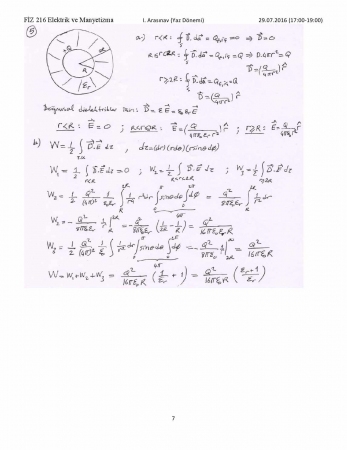 FİZ 216 Elektrik ve Manyetizma I. Arasınav (Yaz Dönemi) 29.07.2016 (17:00-19:00)
5
+Q
R
εr
a.) r<R: ∮ D⃗.da⃗ = Qf,iç = 0 ⇒ D⃗=0
R≤r<2R: ∮ D⃗.da⃗ = Qf,iç = Q ⇒ D.4πr²=Q
D⃗=(Q/4πr²) r̂
r≥2R: ∮ D⃗.da⃗ = Qf,iç=Q
D⃗=(Q/4πr²) r̂
Doğrusal dielektrikler için: D⃗ = εE⃗ = ε0εrE⃗
r<R: E⃗=0 ; R≤r<2R: E⃗=(Q/4πε0εr r²) r̂ ; r≥2R: E⃗=Q/4πε0r² r̂
b.) W=1/2 ∫ D⃗.E⃗ dτ , dτ=(dr)(rdθ)(rsinθdφ)
W1 = 1/2 ∫ D⃗.E⃗ dτ = 0 ; W2 = 1/2 ∫ D⃗.E⃗ dτ ; W3 = 1/2 ∫ D⃗.E⃗ dτ
r<R R<r<2R r>2R
W2 = 1/2 Q²/(4π)² 1/ε0εr ∫ 1/r⁴ r²dr ∫ sinθdθ ∫ dφ = Q²/8πε0εr ∫ 1/r² dr
4π
W2 = - Q²/8πε0εr 1/r |R 2R = - Q²/8πε0εr (1/2R - 1/R) = Q²/16πε0εrR
W3 = 1/2 Q²/(4π)² 1/ε0 ∫ 1/r² dr ∫ sinθdθ ∫ dφ = - Q²/8πε0 1/r |2R ∞ = Q²/16πε0R
4π
W = W1+W2+W3 = Q²/16πε0R (1/εr + 1) = Q²/16πε0R (εr+1/εr)
7